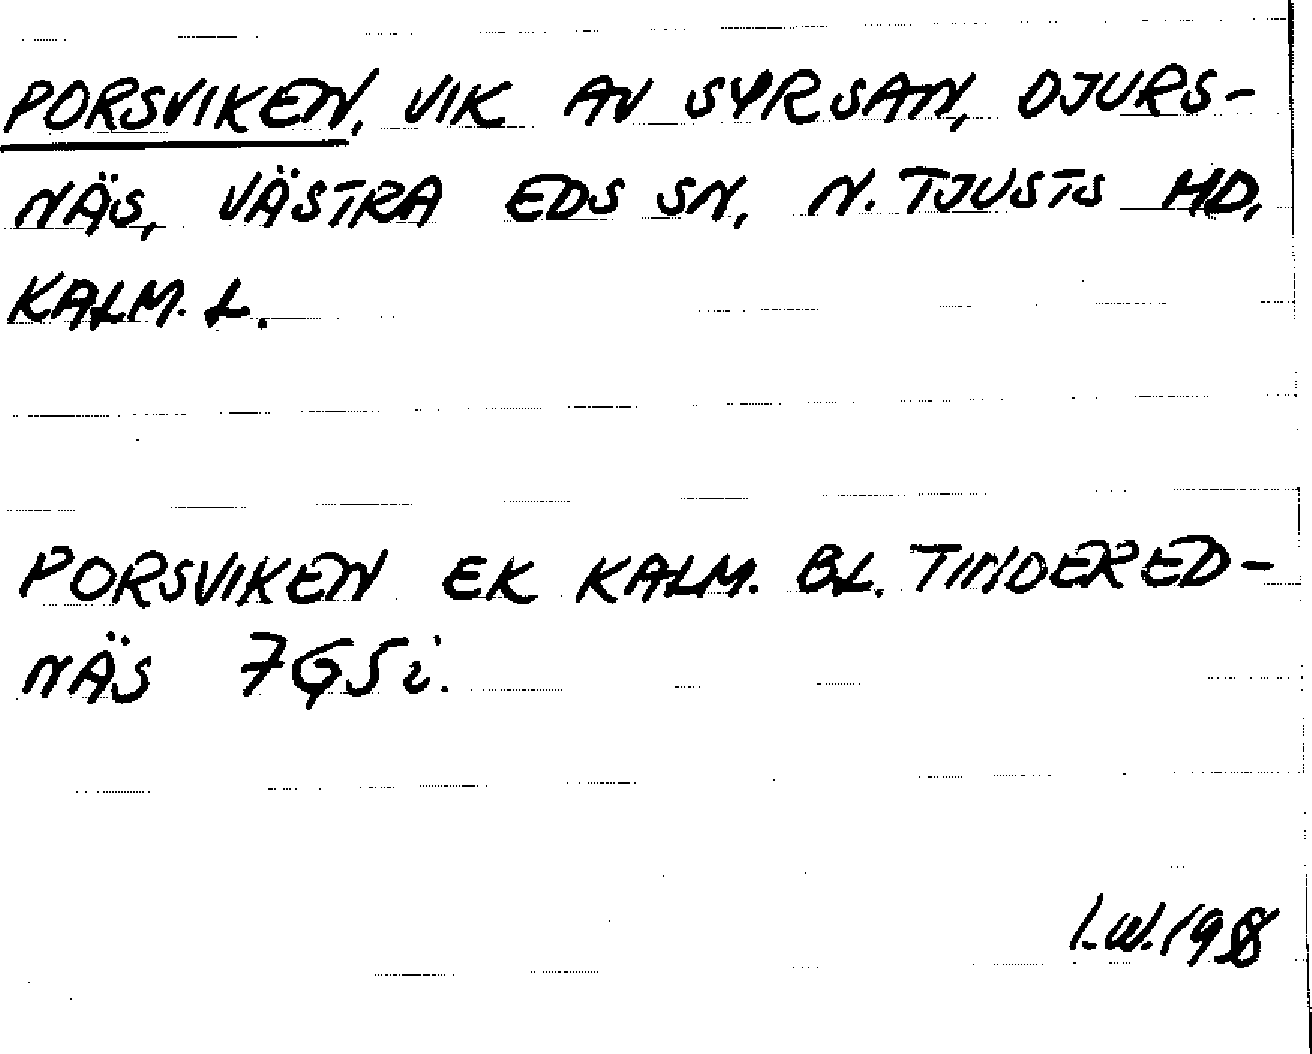 PORSVIKEN, VIK AV SYRSAN, DJURS-
NÄS, VÄSTRA EDS SN, N. TJUSTS HD,
KALM. L.
PORSVIKEN EK KALM. BL. TINDERED-
NÄS 7G5i.
I.W. 198